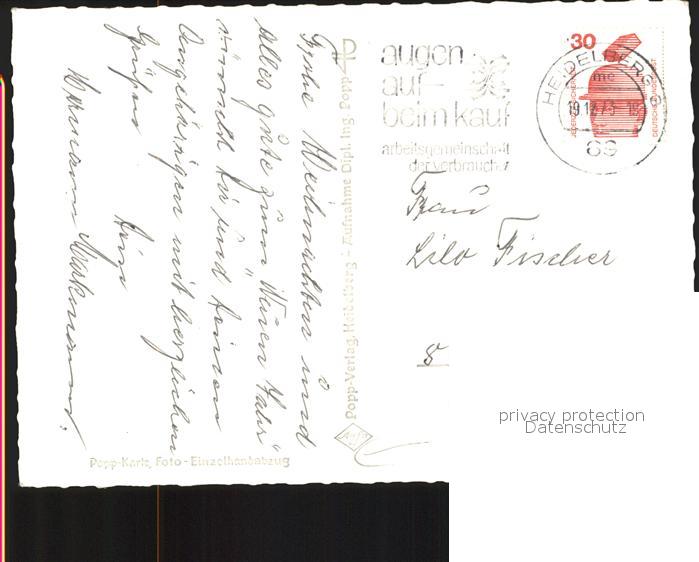 Frohe Weihnachten und
alles gute zum "Neuen Jahr"
wünscht dir und deinen
Angehörigen mit herzlichen
Grüßen dein
Hermann
Popp-Karte, Foto-Einzelhandabzug
Popp-Verlag, Heidelberg - Aufnahme Dipl. Ing. Popp
Agfa
augen
auf
beim kauf
arbeitsgemeinschaft
der verbraucher
30
HEIDELBERG
mc
69
Frau
Lilo Fischer
8
privacy protection
Datenschutz